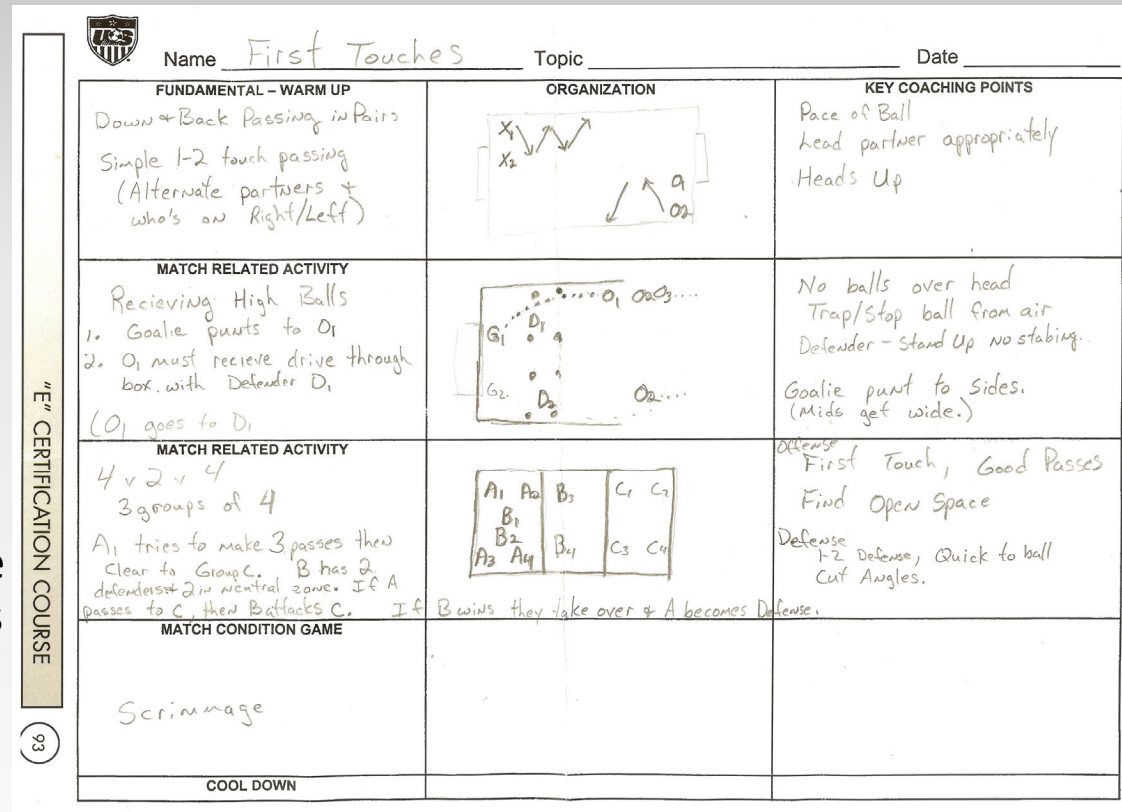 US
Name First Touches Topic Date
FUNDAMENTAL – WARM UP
Down & Back Passing in Pairs
Simple 1-2 touch passing
(Alternate partners &
who's on Right/Left)
ORGANIZATION
X1
X2
O1
O2
KEY COACHING POINTS
Pace of Ball
Lead partner appropriately
Heads Up
MATCH RELATED ACTIVITY
Recieving High Balls
1. Goalie punts to O1
2. O1 must recieve drive through
box. with Defender D1
(O1 goes to D1
O1 O2O3....
D1
G1
G2.
D2
O2....
No balls over head
Trap/Stop ball from air
Defender - Stand Up No stabing.
Goalie punt to Sides.
(Mids get wide.)
MATCH RELATED ACTIVITY
4 v 2 v 4
3 groups of 4
A1 tries to make 3 passes then
Clear to Group C. B has 2
defenders & 2 in neutral zone. If A
passes to C, then B attacks C. If B wins they take over & A becomes Defense.
A1 A2 B3 C1 C2
B1
B2
A3 A4 B4 C3 C4
Offense
First Touch, Good Passes
Find Open Space
Defense
1-2 Defense, Quick to ball
Cut Angles.
MATCH CONDITION GAME
Scrimmage
COOL DOWN
"E" CERTIFICATION COURSE
93